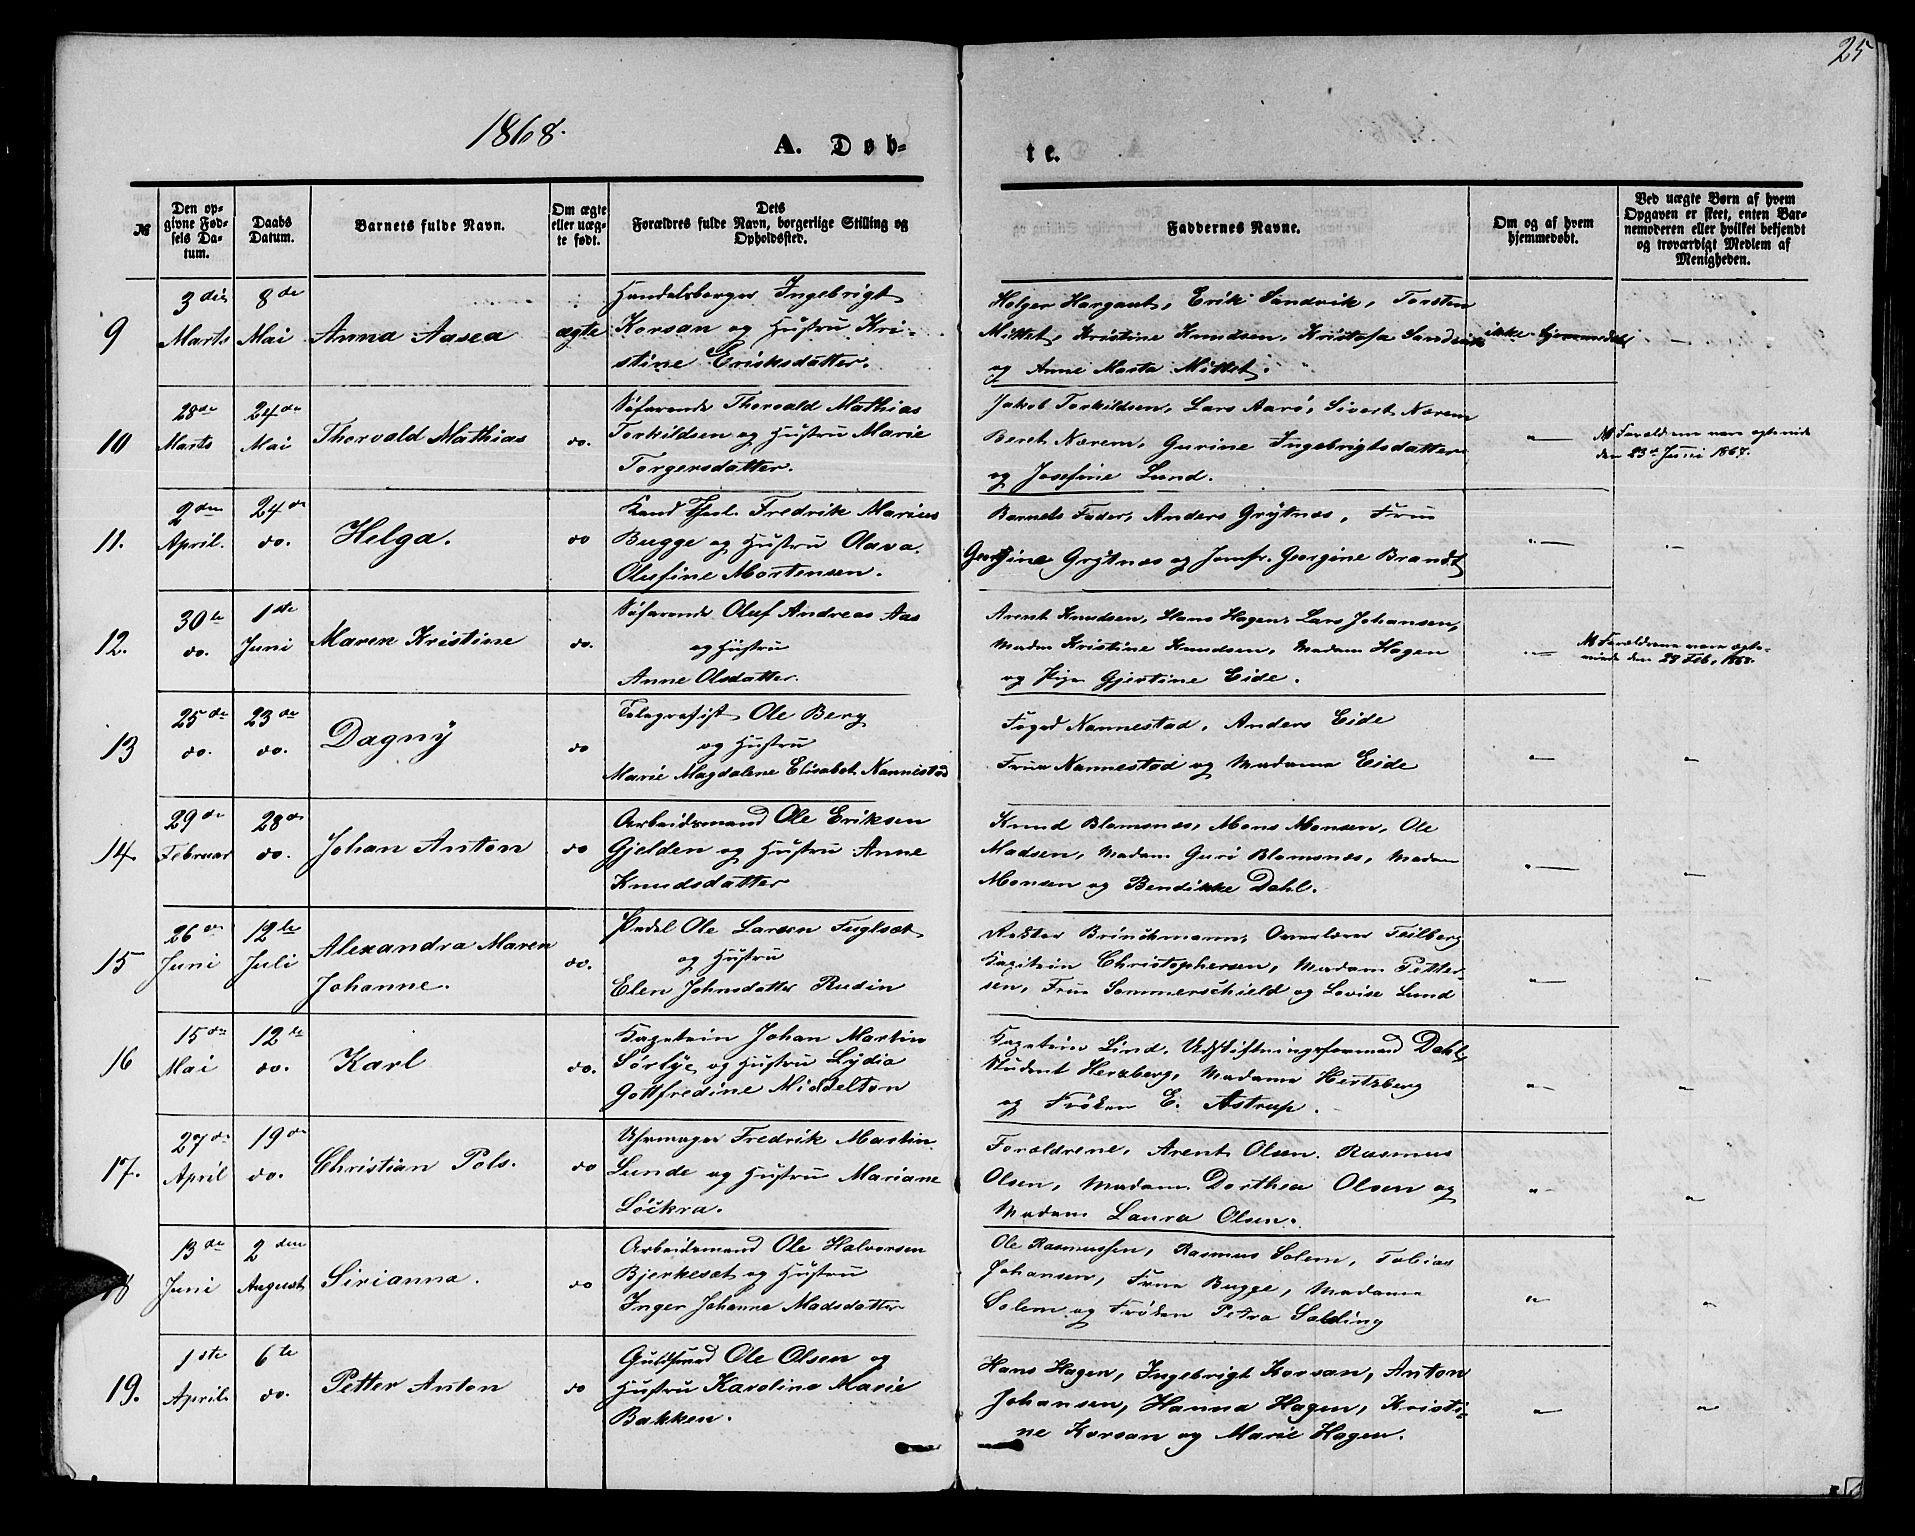 25
1868.
A. Døb-
te.
№
Den op-
givne Fød-
sels Da-
tum.
Daabs
Datum.
Barnets fulde Navn.
Om ægte
eller uæg-
te født.
Dets
Forældres fulde Navn, borgerlige Stilling og
Opholdssted.
Faddernes Navne.
Om og af hvem
hjemmedøbt.
Ved uægte Børn af hvem
Opgaven er skeet, enten Bar-
nemoderen eller hvilket bekjendt
og troværdigt Medlem af
Menigheden.
9
3die
Marts
8de
Mai
Anna Aasea
ægte
Handelsborger Ingebrigt
Korsan og Hustru Kri-
stine Eriksdatter.
Holger Hargaut, Erik Sandvik, Torsten
Mittet, Kristine Knudsen, Kristofa Sandvik
og Anne Marta Mittet.
ikke hjemmedøbt
—
10
28de
Marts
24de
Mai
Thorvald Mathias
do.
Søfarende Thorvald Mathias
Torkildsen og Hustru Marie
Torgersdatter.
Jakob Torkildsen, Lars Aarø, Sivert Nærem
Beret Nærem, Gurine Ingebrigtsdatter
og Josefine Lund.
"—
Forældrene vare egteviede
den 23de Juni 1867.
11.
2den
April.
24de
do.
Helga.
do
Kand Theol. Fredrik Marius
Bugge og Hustru Olava
Olufine Mortensen.
Barnets Fader, Anders Grytnæs, Frue
Georgine Grytnæs og Jomfr. Georgine Brandt
"—
"—
12.
30te
do.
1ste
Juni
Maren Kristine
do.
Søfarende Oluf Andreas Aas
og Hustru
Anne Olsdatter.
Arent Knudsen, Hans Hagen, Lars Johansen,
Madm Kristine Knudsen, Madam Hagen
og Pige Gjertine Eide.
"—
Forældrene vare egte-
viede den 29 Feb, 1868.
13
25de
do.
23de
do.
Dagny
do
Telegrafist Ole Berg
og Hustru
Marie Magdalene Elisabet Nannestad
Foged Nannestad, Anders Eide
Frue Nannestad og Madame Eide
"—
"—
14.
29de
Februar
28de
do.
Johan Anton
do
Arbeidsmand Ole Eriksen
Gjelden og Hustru Anne
Knudsdatter
Knud Blomsnæs, Mons Monsen, Ole
Madsen, Madam Gurø Blomsnæs, Madam
Monsen og Bendikke Dahl.
"—
"—
15
26de
Juni
12te
Juli
Alexandra Maren
Johanne.
do.
Pedel Ole Larsen Fuglset
og Hustru
Elen Johnsdatter Rudin
Rektor Brinchmann, Overlærer Feilberg
Kapitein Christophersen, Madam Petter-
sen, Frue Sommerschield og Lovise Lund
"—
"—
16
15de
Mai
12te
do.
Karl
do.
Kapetein Johan Martin
Sørlye og Hustru Lydia
Gottfredine Middelton
Kapetein Lind, Udskiftningsformand Dahl,
Student Herzberg, Madame Hertzberg
og Frøken E. Astrup.
"—
"—
17.
27de
April
19de
do.
Christian Pols.
do
Uhrmager Fredrik Martin
Lunde og Hustru Mariane
Løckra.
Forældrene, Arent Olsen, Rasmus
Olsen, Madam Dorthea Olsen og
Madam Laura Olsen.
"—
"
18
13de
Juni
2den
August
Sirianna.
do
Arbeidsmand Ole Halvorsen
Bjerkeset og Hustru
Inger Johanna Madsdatter
Ole Rasmussen, Rasmus Solem, Tobias
Johansen, Frue Bugge, Madame
Solem og Frøken Petra Solding
"—
"—
19.
1ste
April
6te
do.
Petter Anton
do
Guldsmed Ole Olsen og
Hustru Karoline Marie
Bakken.
Hans Hagen, Ingebrigt Korsan, Anton
Johansen, Hanna Hagen, Kristi-
ne Korsan og Marie Hagen.
"—
"—